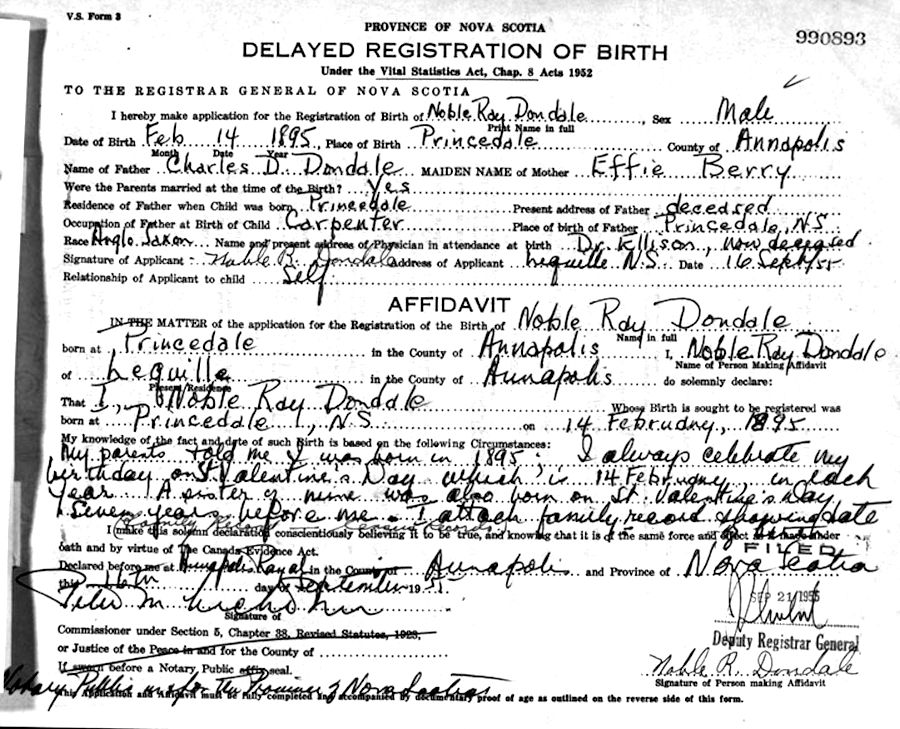 V.S. Form 3
PROVINCE OF NOVA SCOTIA
990893
DELAYED REGISTRATION OF BIRTH
Under the Vital Statistics Act, Chap. 8 Acts 1952
TO THE REGISTRAR GENERAL OF NOVA SCOTIA
I hereby make application for the Registration of Birth of Noble Ray Dondale, Sex Male
Print Name in full
Date of Birth Feb 14 1895, Place of Birth Princedale County of Annapolis
Month Date Year
Name of Father Charles D. Dondale MAIDEN NAME of Mother Effie Berry
Were the Parents married at the time of the Birth? Yes
Residence of Father when Child was born Princedale Present address of Father deceased
Occupation of Father at Birth of Child Carpenter Place of birth of Father Princedale, N.S.
Race Anglo Saxon Name and present address of Physician in attendance at birth Dr. Ellison, now deceased
Signature of Applicant Noble R. Dondale Address of Applicant Lequille N.S. Date 16 Sept/55
Relationship of Applicant to child Self
AFFIDAVIT
IN THE MATTER of the application for the Registration of the Birth of Noble Ray Dondale
Name in full
born at Princedale in the County of Annapolis I, Noble Ray Dondale
Name of Person Making Affidavit
of Lequille in the County of Annapolis do solemnly declare:
Present Residence
That I, Noble Ray Dondale Whose Birth is sought to be registered was
born at Princedale, N.S on 14 February, 1895
My knowledge of the fact and date of such Birth is based on the following Circumstances:
My parents told me I was born in 1895; I always celebrate my
birthday on St Valentine's Day which is 14 February, in each
year. A sister of mine was also born on St. Valentine's Day
seven years before me. I attach family record showing date
I make this solemn declaration conscientiously believing it to be true, and knowing that it is of the same force and effect as if made under
oath and by virtue of The Canada Evidence Act.
FILED
Declared before me at Annapolis Royal in the County of Annapolis and Province of Nova Scotia
this day of September 1955
SEP 21 1955
Signature of
Commissioner under Section 5, Chapter 38, Revised Statutes, 1923,
or Justice of the Peace in and for the County of
Deputy Registrar General
If sworn before a Notary Public affix seal.
Noble R. Dondale
Signature of Person making Affidavit
Notary Public in & for the Province of Nova Scotia
This Application and Affidavit must be fully completed and accompanied by documentary proof of age as outlined on the reverse side of this form.